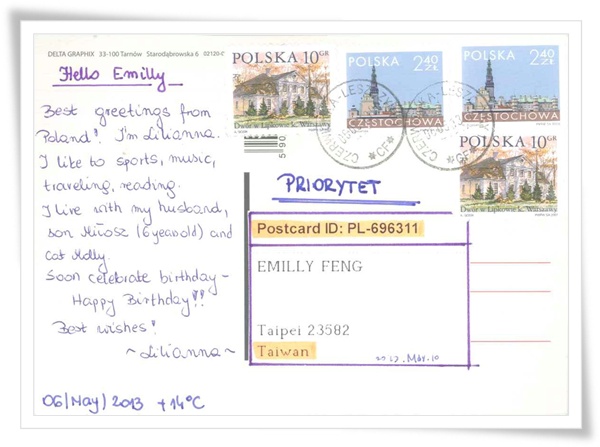 DELTA GRAPHIX 33-100 Tarnów Starodąbrowska 6 02120-0
Hello Emilly
Best greetings from
Poland! I'm Lilianna.
I like to sports, music,
traveling, reading.
I live with my husband,
son Miłosz (6 yearold) and
cat Molly.
Soon celebrate birthday -
Happy Birthday!!
Best wishes!
~Lilianna~
06/May/2013 +14°C
POLSKA 10GR
Dwór w Lipkowie k. Warszawy
POLSKA 2,40 ZŁ
CZĘSTOCHOWA
POLSKA 2,40 ZŁ
CZĘSTOCHOWA
POLSKA 10GR
Dwór w Lipkowie k. Warszawy
PRIORYTET
Postcard ID: PL-696311
EMILLY FENG
Taipei 23582
Taiwan
2013.May.10